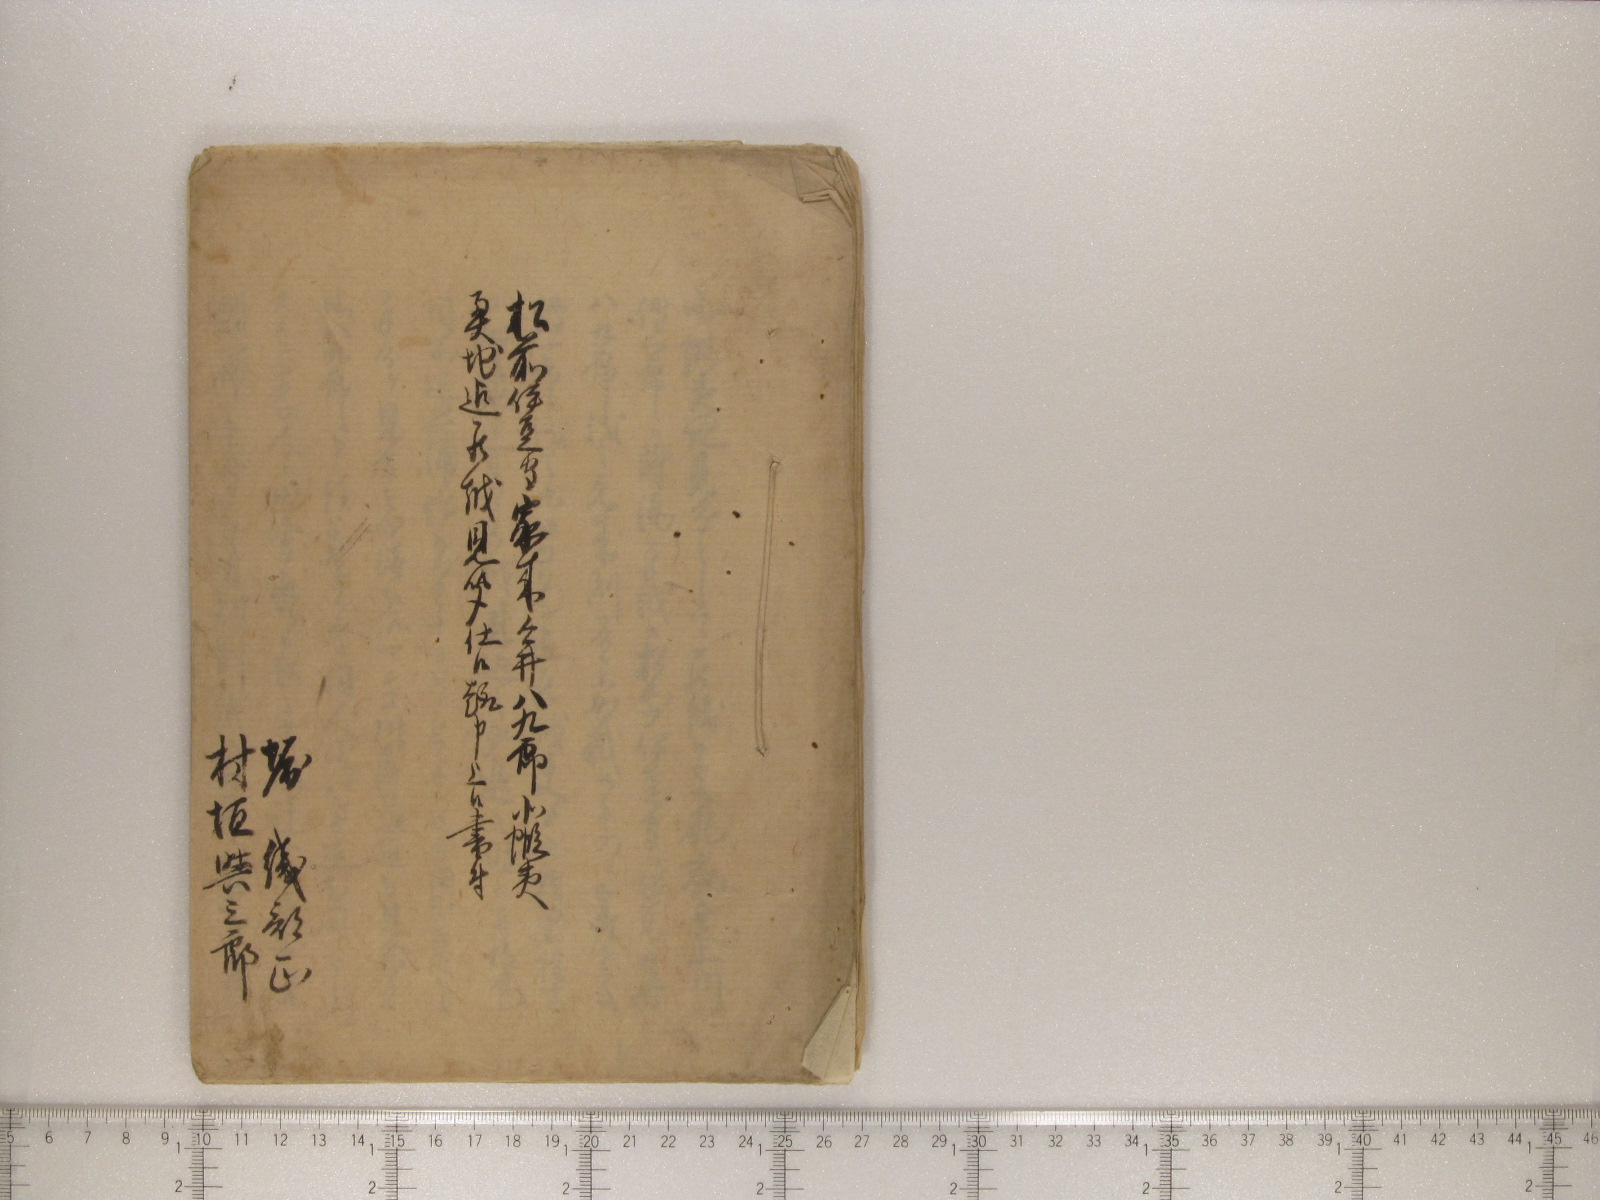 松前伊豆守家来今井八九郎北蝦夷
奥地迄罷越見分仕候趣申上候書付
堀 織部正
村垣與三郎
5 6 7 8 9 10 11 12 13 14 15 16 17 18 19 20 21 22 23 24 25 26 27 28 29 30 31 32 33 34 35 36 37 38 39 40 41 42 43 44 45 46
1 1 1 1 1 1 1 1
2 2 2 2 2 2 2 2